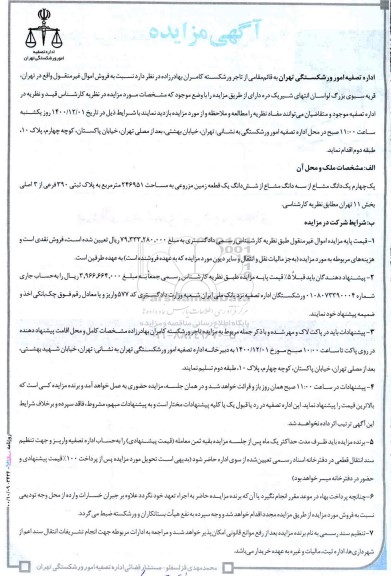 آگهی مزایده
اداره تصفیه
امور ورشکستگی تهران
اداره تصفیه امور ورشکستگی تهران به قائم‌مقامی از تاجر ورشکسته کامران بهادرزاده در نظر دارد نسبت به فروش اموال غیرمنقول واقع در تهران،
قریه سبوی بزرگ لواسان انتهای شیرین‌رک دره دارای از طریق مزایده را با وضع موجود که مشخصات مورد مزایده در نظریه کارشناس قید و نظریه در
اداره تصفیه موجود و متقاضیان می‌توانند مفاد نظریه را مطالعه و ملاحظه و از مورد مزایده بازدید نمایند با شرایط ذیل در تاریخ ۱۴۰۰/۱۲/۰۱ روز یکشنبه
ساعت ۱۱:۰۰ صبح در محل اداره تصفیه امور ورشکستگی به نشانی: تهران، خیابان بهشتی، بعد از مصلی تهران، خیابان پاکستان، کوچه چهارم، پلاک ۱۰،
طبقه دوم اقدام نماید.
الف: مشخصات ملک و محل آن
یک‌چهارم یک‌دانگ مشاع از سه دانگ مشاع از شش‌دانگ یک قطعه زمین مزروعی به مساحت ۲۴۶۹۵۱ مترمربع به پلاک ثبتی ۳۹۰ فرعی از ۳ اصلی
بخش ۱۱ تهران مطابق نظریه کارشناسی.
ب: شرایط شرکت در مزایده
۱- قیمت پایه مزایده اموال غیرمنقول طبق نظریه کارشناس رسمی دادگستری به مبلغ ۷۹,۳۳۳,۲۸۰,۰۰۰ ریال تعیین شده است، فروش نقدی است و
هزینه‌های مربوطه به مورد مزایده (به‌جز مالیات نقل و انتقال و سایر دیون مورد مزایده که به عهده فروشنده است) به عهده طرفین است.
۲- پیشنهاد دهندگان باید قبلاً ۵٪ قیمت پایه مزایده طبق نظریه کارشناس رسمی جمعاً به مبلغ ۳,۹۶۶,۶۶۴,۰۰۰ ریال را به حساب جاری
شماره ۰۱۰۸۰۷۳۳۹۰۰۰۴ ورشکستگان اداره تصفیه نزد بانک ملی ایران شعبه وزارت دادگستری کد ۵۷۷ واریز و یا معادل رقم فوق چک بانکی اخذ و
ضمیمه پیشنهاد خود نمایند.
۳- پیشنهادات باید در پاکت لاک و مهر شده و با ذکر جمله مربوط به مزایده تاجر ورشکسته کامران بهادرزاده مشخصات کامل و محل اقامت پیشنهاد دهنده
در روی پاکت تا ساعت ۱۰:۰۰ صبح مورخ ۱۴۰۰/۱۲/۰۱ به دبیرخانه اداره تصفیه امور ورشکستگی تهران به نشانی: تهران، خیابان شهید بهشتی،
بعد از مصلی تهران، خیابان پاکستان، کوچه چهارم، پلاک ۱۰، طبقه دوم تسلیم نمایند.
۴- پیشنهادات در ساعت ۱۱:۰۰ صبح همان روز باز و قرائت خواهد شد و در همان جلسه، مزایده حضوری به عمل خواهد آمد و برنده مزایده کسی است که
بالاترین قیمت را پیشنهاد نماید. این اداره تصفیه در رد یا قبول یک یا کلیه پیشنهادات مختار است و به پیشنهادات مبهم، مشروط، فاقد سپرده و برخلاف شرایط
این آگهی ترتیب اثر داده نخواهد شد.
۵- برنده مزایده باید ظرف مدت حداکثر یک ماه پس از جلسه مزایده بقیه ثمن معامله (قیمت پیشنهادی) را به حساب اداره تصفیه واریز و جهت تنظیم
سند انتقال قطعی در دفترخانه اسناد رسمی تعیین شده از سوی اداره حاضر شود (بدیهی است تحویل مورد مزایده پس از پرداخت ۱۰۰٪ قیمت پیشنهادی و
حضور در دفترخانه میسر خواهد بود)
۶- چنانچه پرداخت بهاء در موعد مقرر انجام نگیرد یا آن که برنده مزایده حاضر به اجراء تعهد خود نگردد علاوه بر جبران خسارات وارده از محل وجه تودیعی
نسبت به فروش مورد از طریق مزایده مجدد اقدام خواهد شد و وجه سپرده به نفع هیأت بستانکاران ورشکسته ضبط می‌گردد.
۷- تنظیم سند رسمی به نام برنده مزایده بعد از رفع موانع قانونی امکان‌پذیر خواهد شد و مراجعه به ادارات مربوطه جهت انجام تشریفات انتقال سند اعم از
شهرداری‌ها، اداره ثبت، مالیات و غیره به عهده خریدار می‌باشد.
محمدمهدی قزلسفلو - مستشار قضائی اداره تصفیه امور ورشکستگی تهران